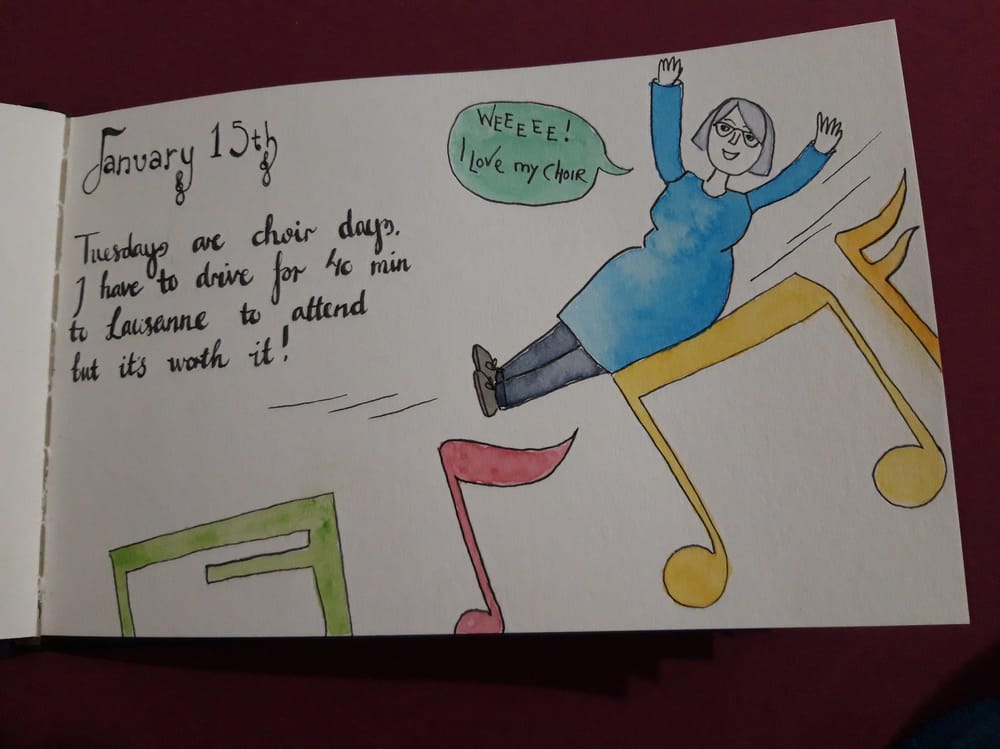 January 15th
Tuesdays are choir days.
I have to drive for 40 min
to Lausanne to attend
but it's worth it!
WEEEEE!
I Love my CHOIR